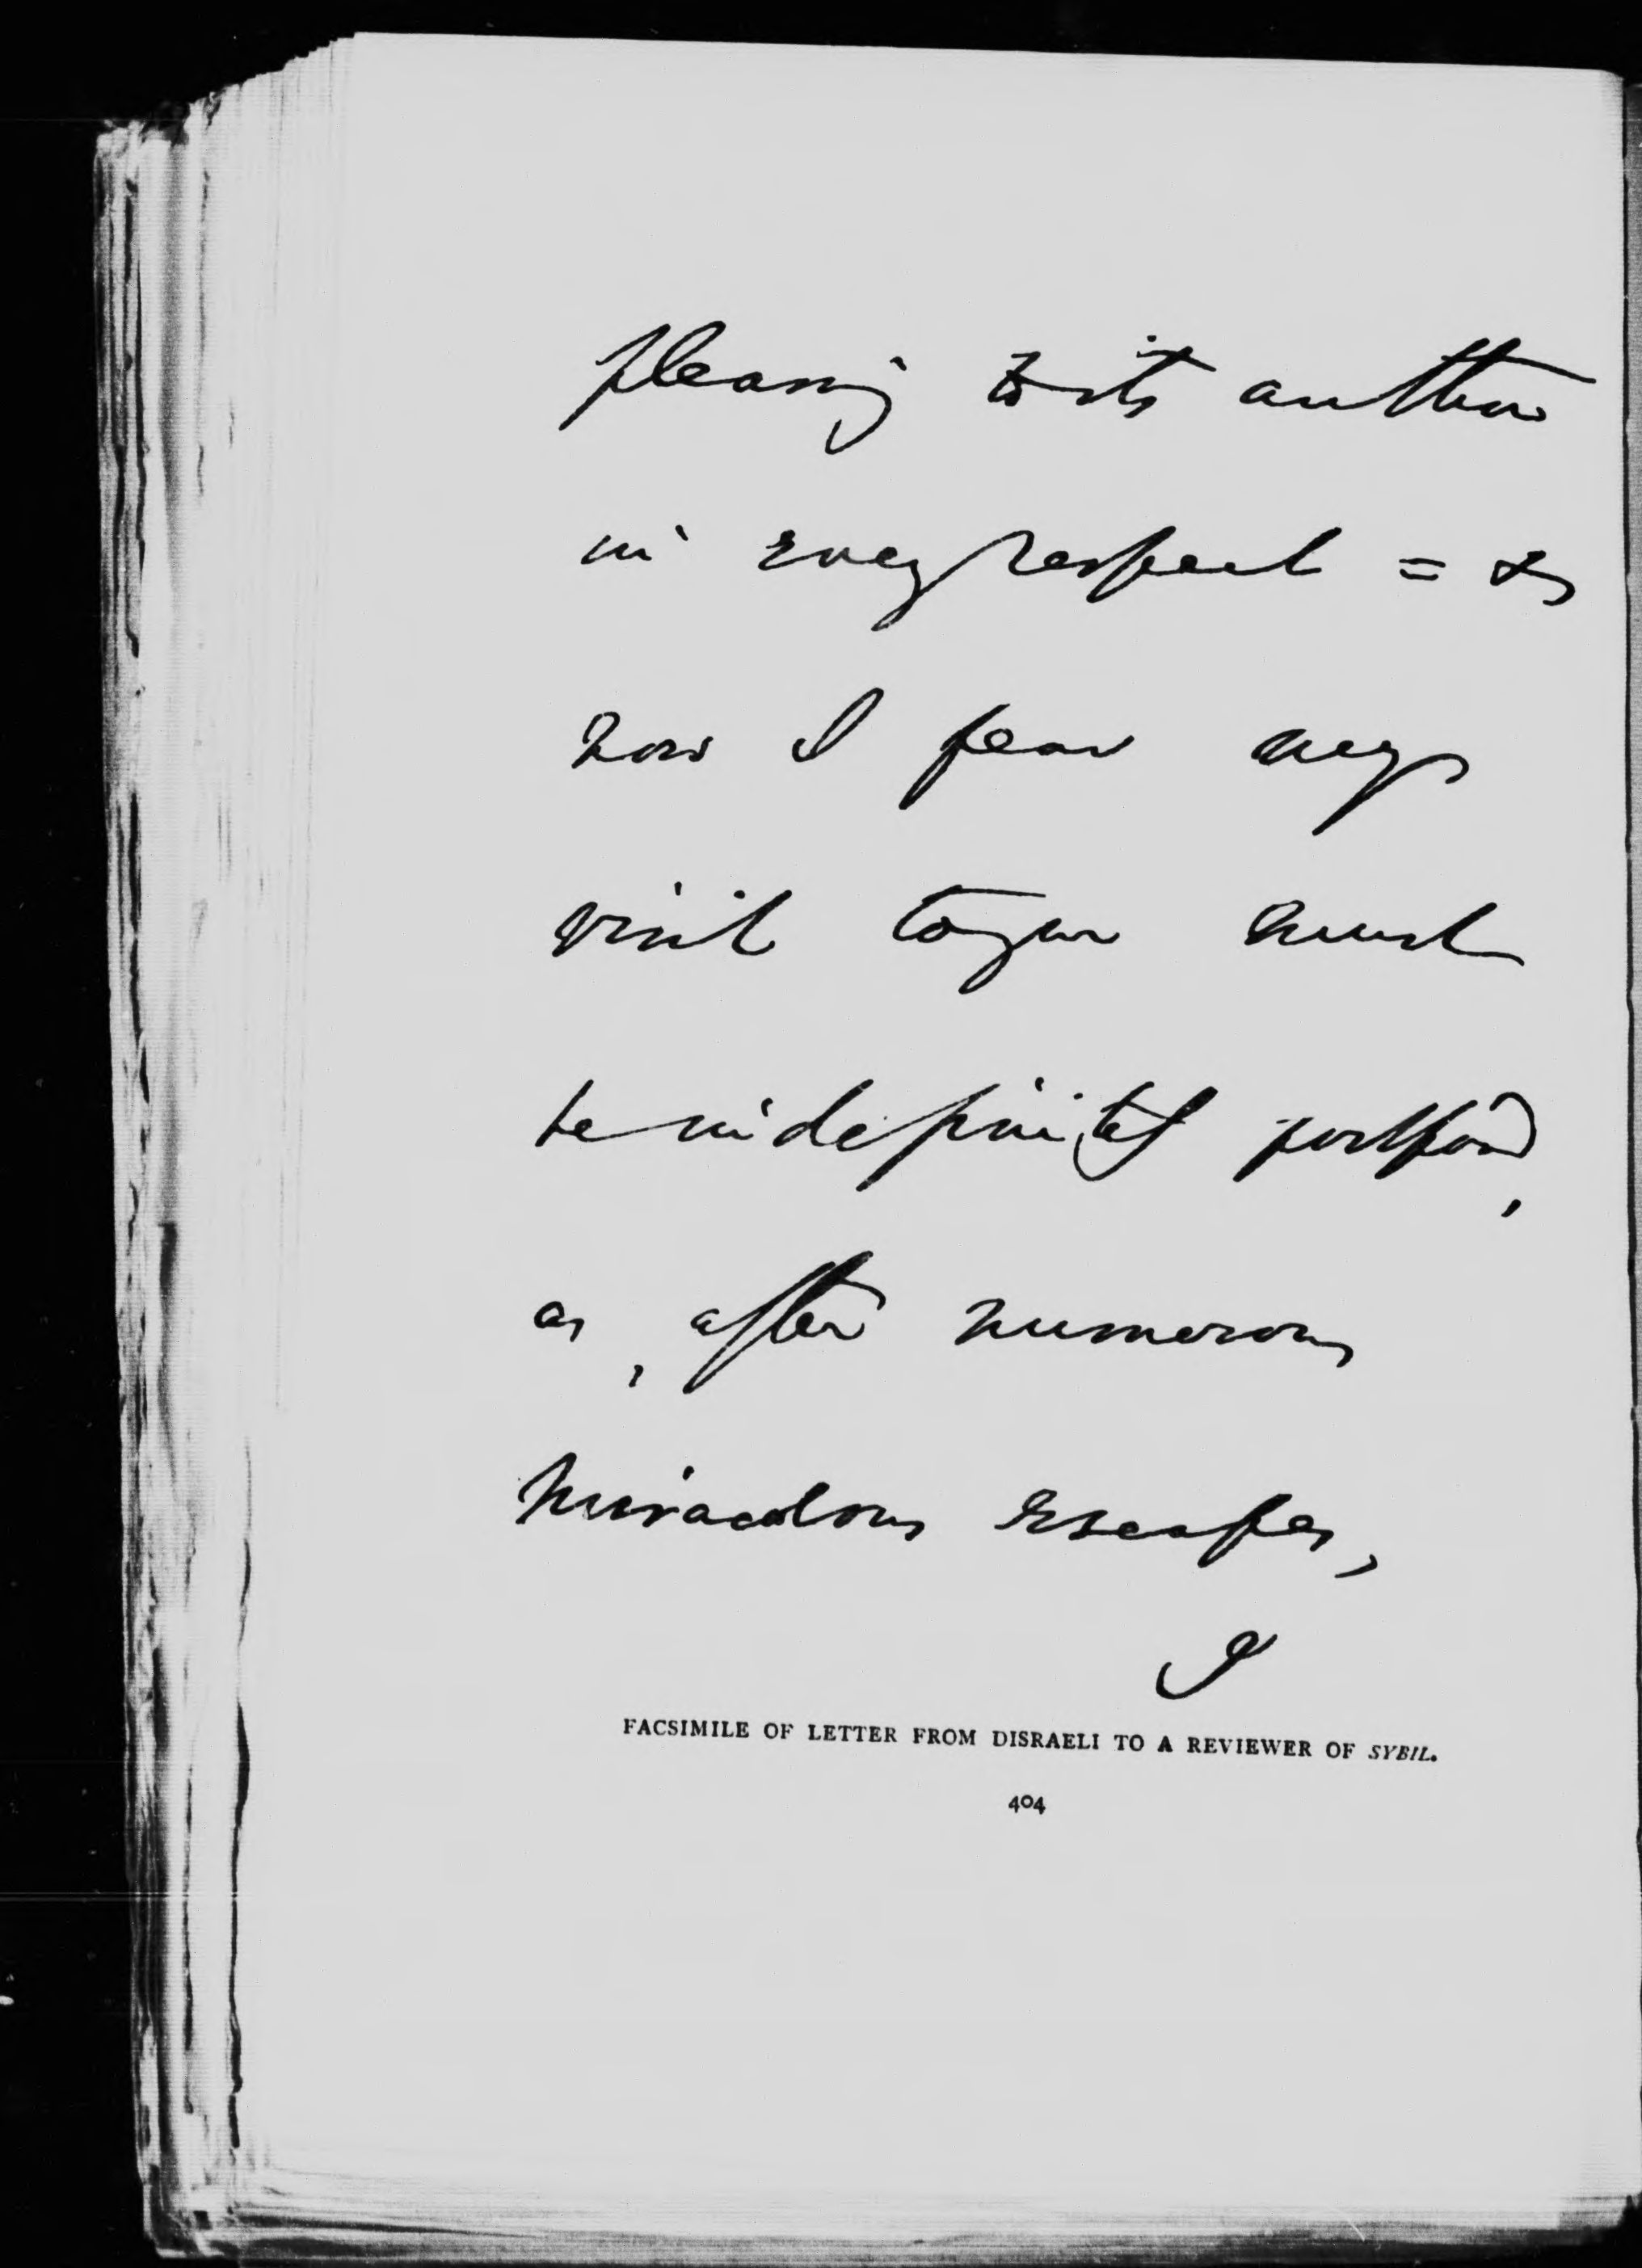 pleasing to its author
in every respect = &
now I fear my
visit to you must
be indefinitely postpond,
as, after numerous
miraculous escapes,
I
FACSIMILE OF LETTER FROM DISRAELI TO A REVIEWER OF SYBIL.
404